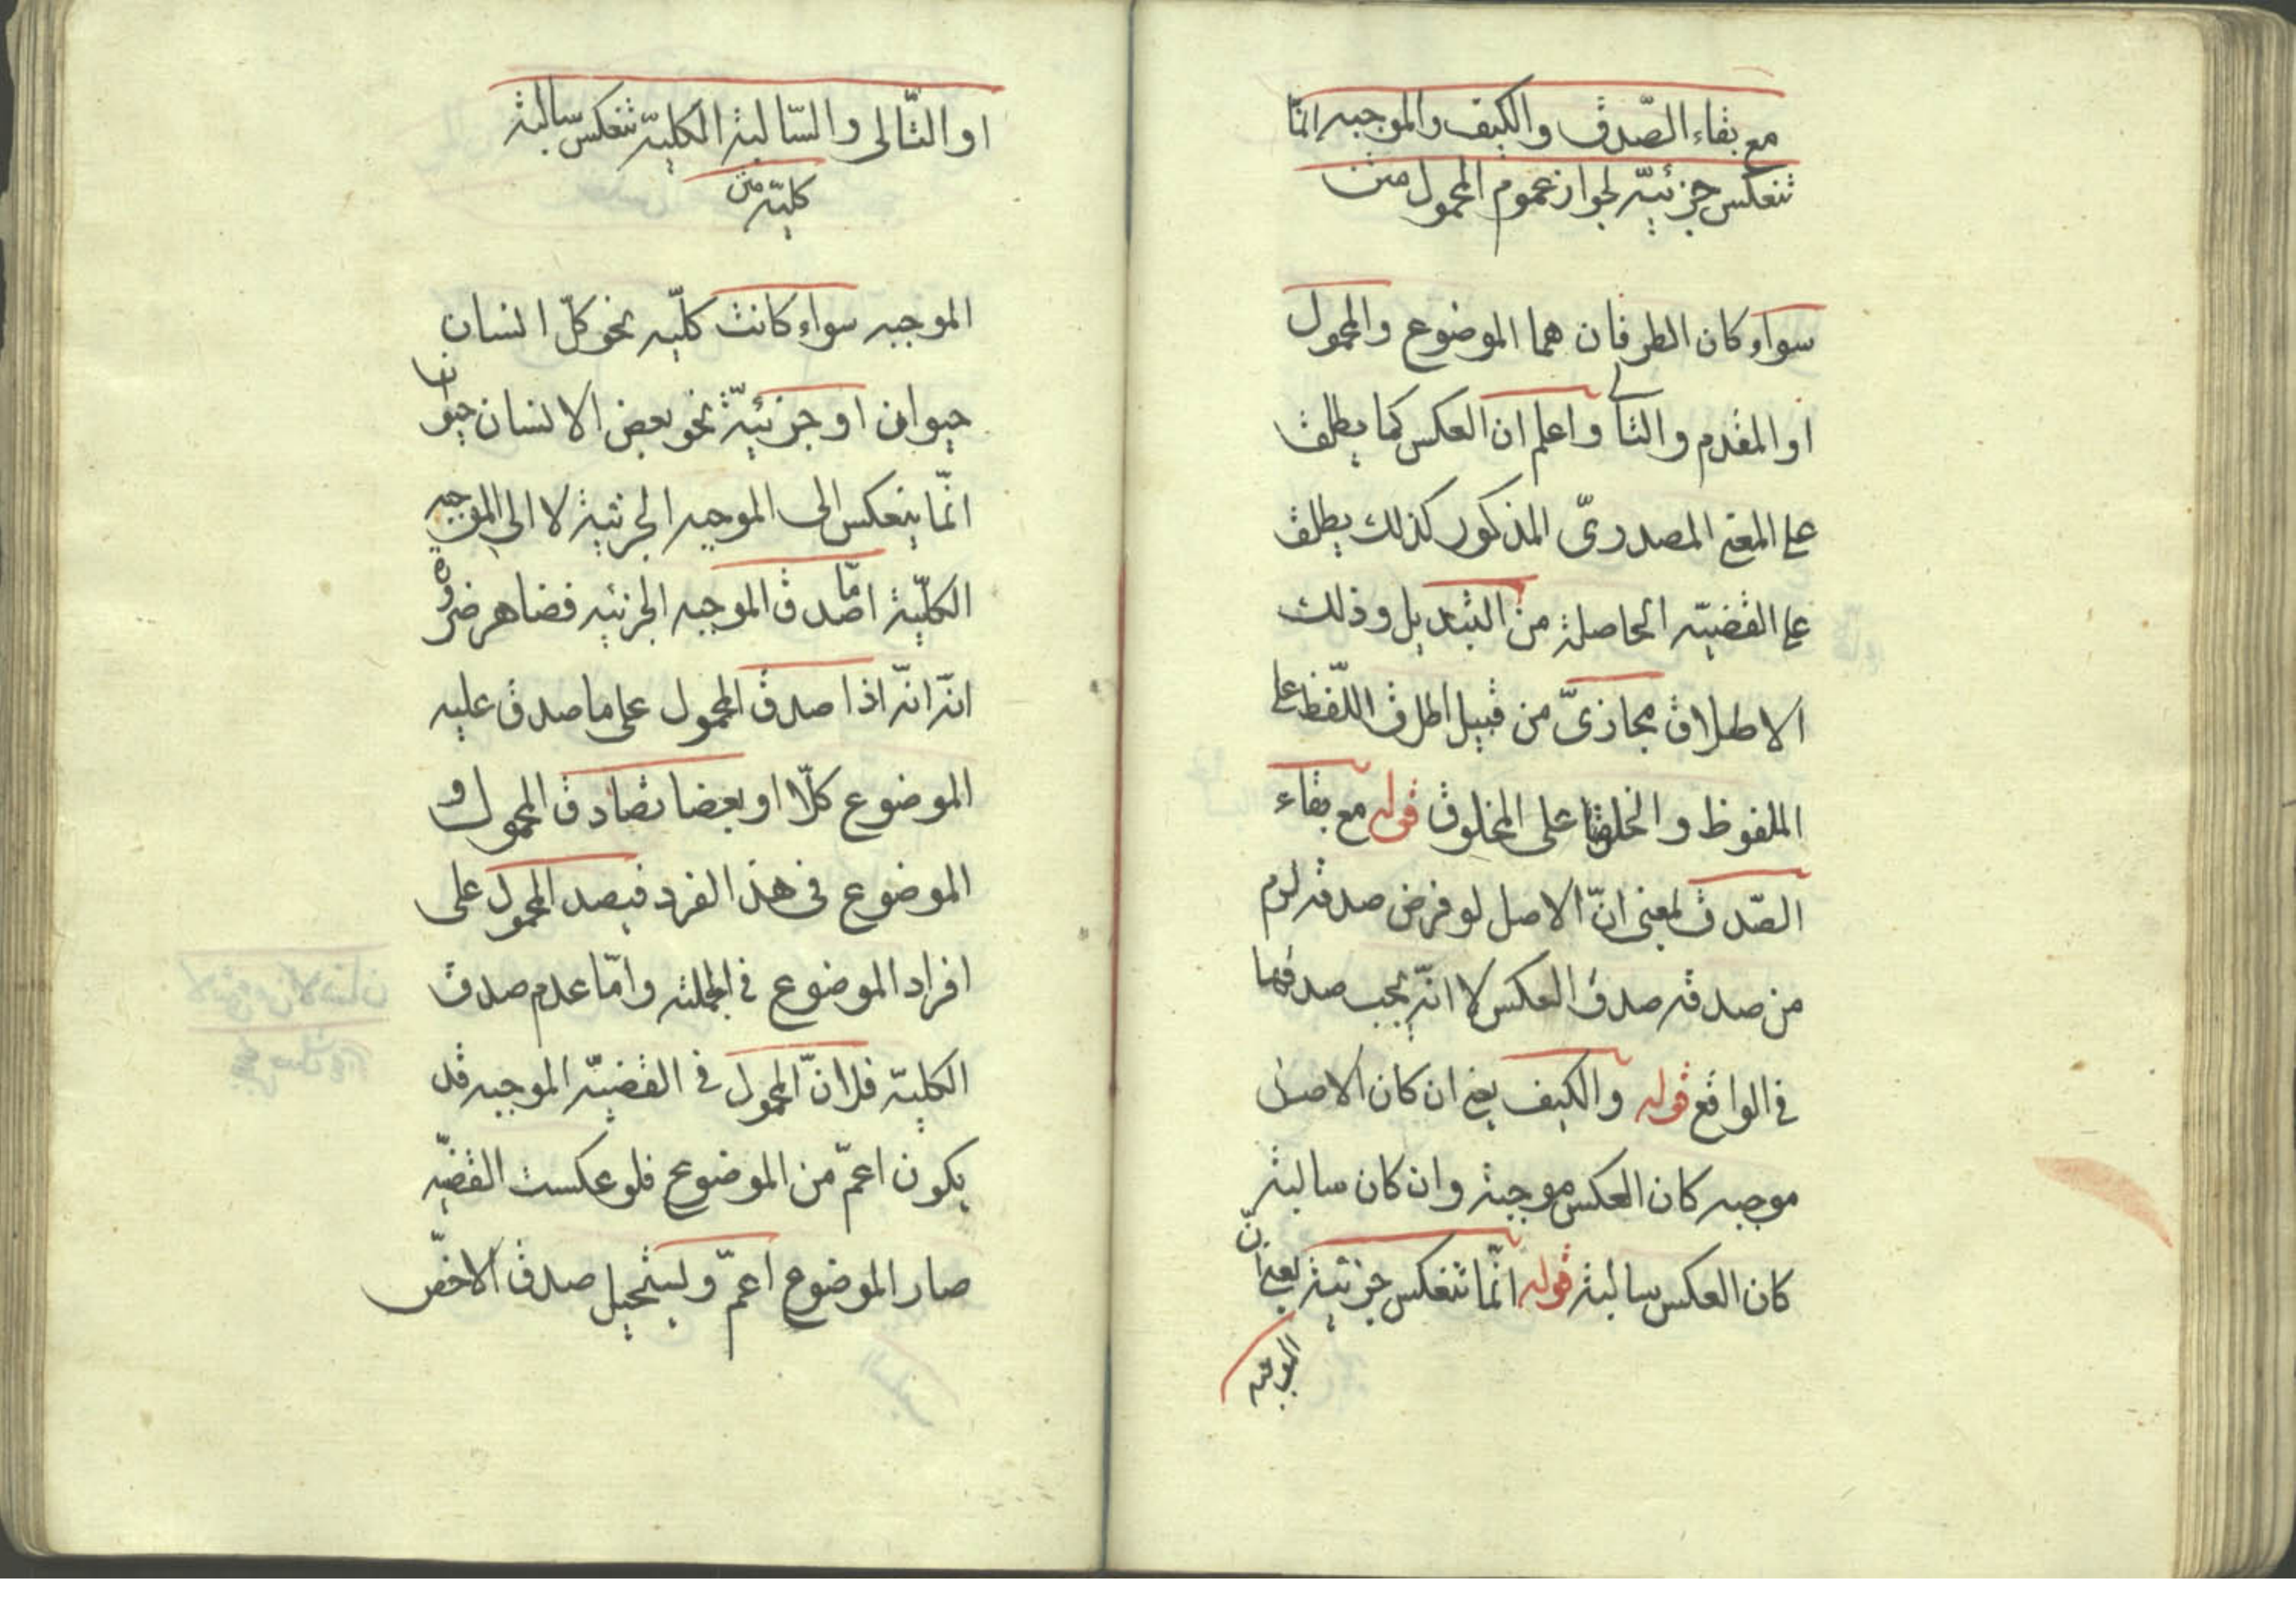 مع بقاء الصّدق والكيف والموجبه انّما
تنعكس جزئيّه لجواز عموم المحمول متن
سواء كان الطرفان هما الموضوع والمحمول
او المقدم والتالے واعلم ان العكس كما يطلق
علے المعنے المصدریّ المذكور كذلك يطلق
علے القضيّه الحاصلة من التبديل وذلك
الاطلاق مجازیّ من قبيل اطلاق اللّفظ علے
الملفوظ والخلق على المخلوق قوله مع بقاء
الصّدق بمعنى انّ الاصل لو فرض صدقه لزم
من صدقه صدق العكس لا انّه يجب صدقهما
فے الواقع قوله والكيف يعنے ان كان الاصل
موجبه كان العكس موجبة وان كان سالبة
كان العكس سالبة قوله انّما تنعكس جزئية يعنے انّ
الموجبه
او التّالى والسّالبة الكليّة تنعكس سالبة
كليّه متن
الموجبه سواء كانت كلّيه نحو كلّ انسان
حيوان او جزئيّة نحو بعض الانسان حيوان
انّما ينعكس الى الموجبه الجزئية لا الى الموجبه
الكلّية امّا صدق الموجبه الجزئيه فضاهر ضروة
انّه انّه اذا صدق المحمول على ما صدق عليه
الموضوع كلّا او بعضا تصادق المحمول و
الموضوع فى هذ الفرد فيصد المحمول على
افراد الموضوع فے الجملة وامّا عدم صدق
الكليّه فلانّ المحمول فے القضيّه الموجبه قد
يكون اعمّ من الموضوع فلو عكست القضيّه
صار الموضوع اعمّ ويستحيل صدق الاخصّ